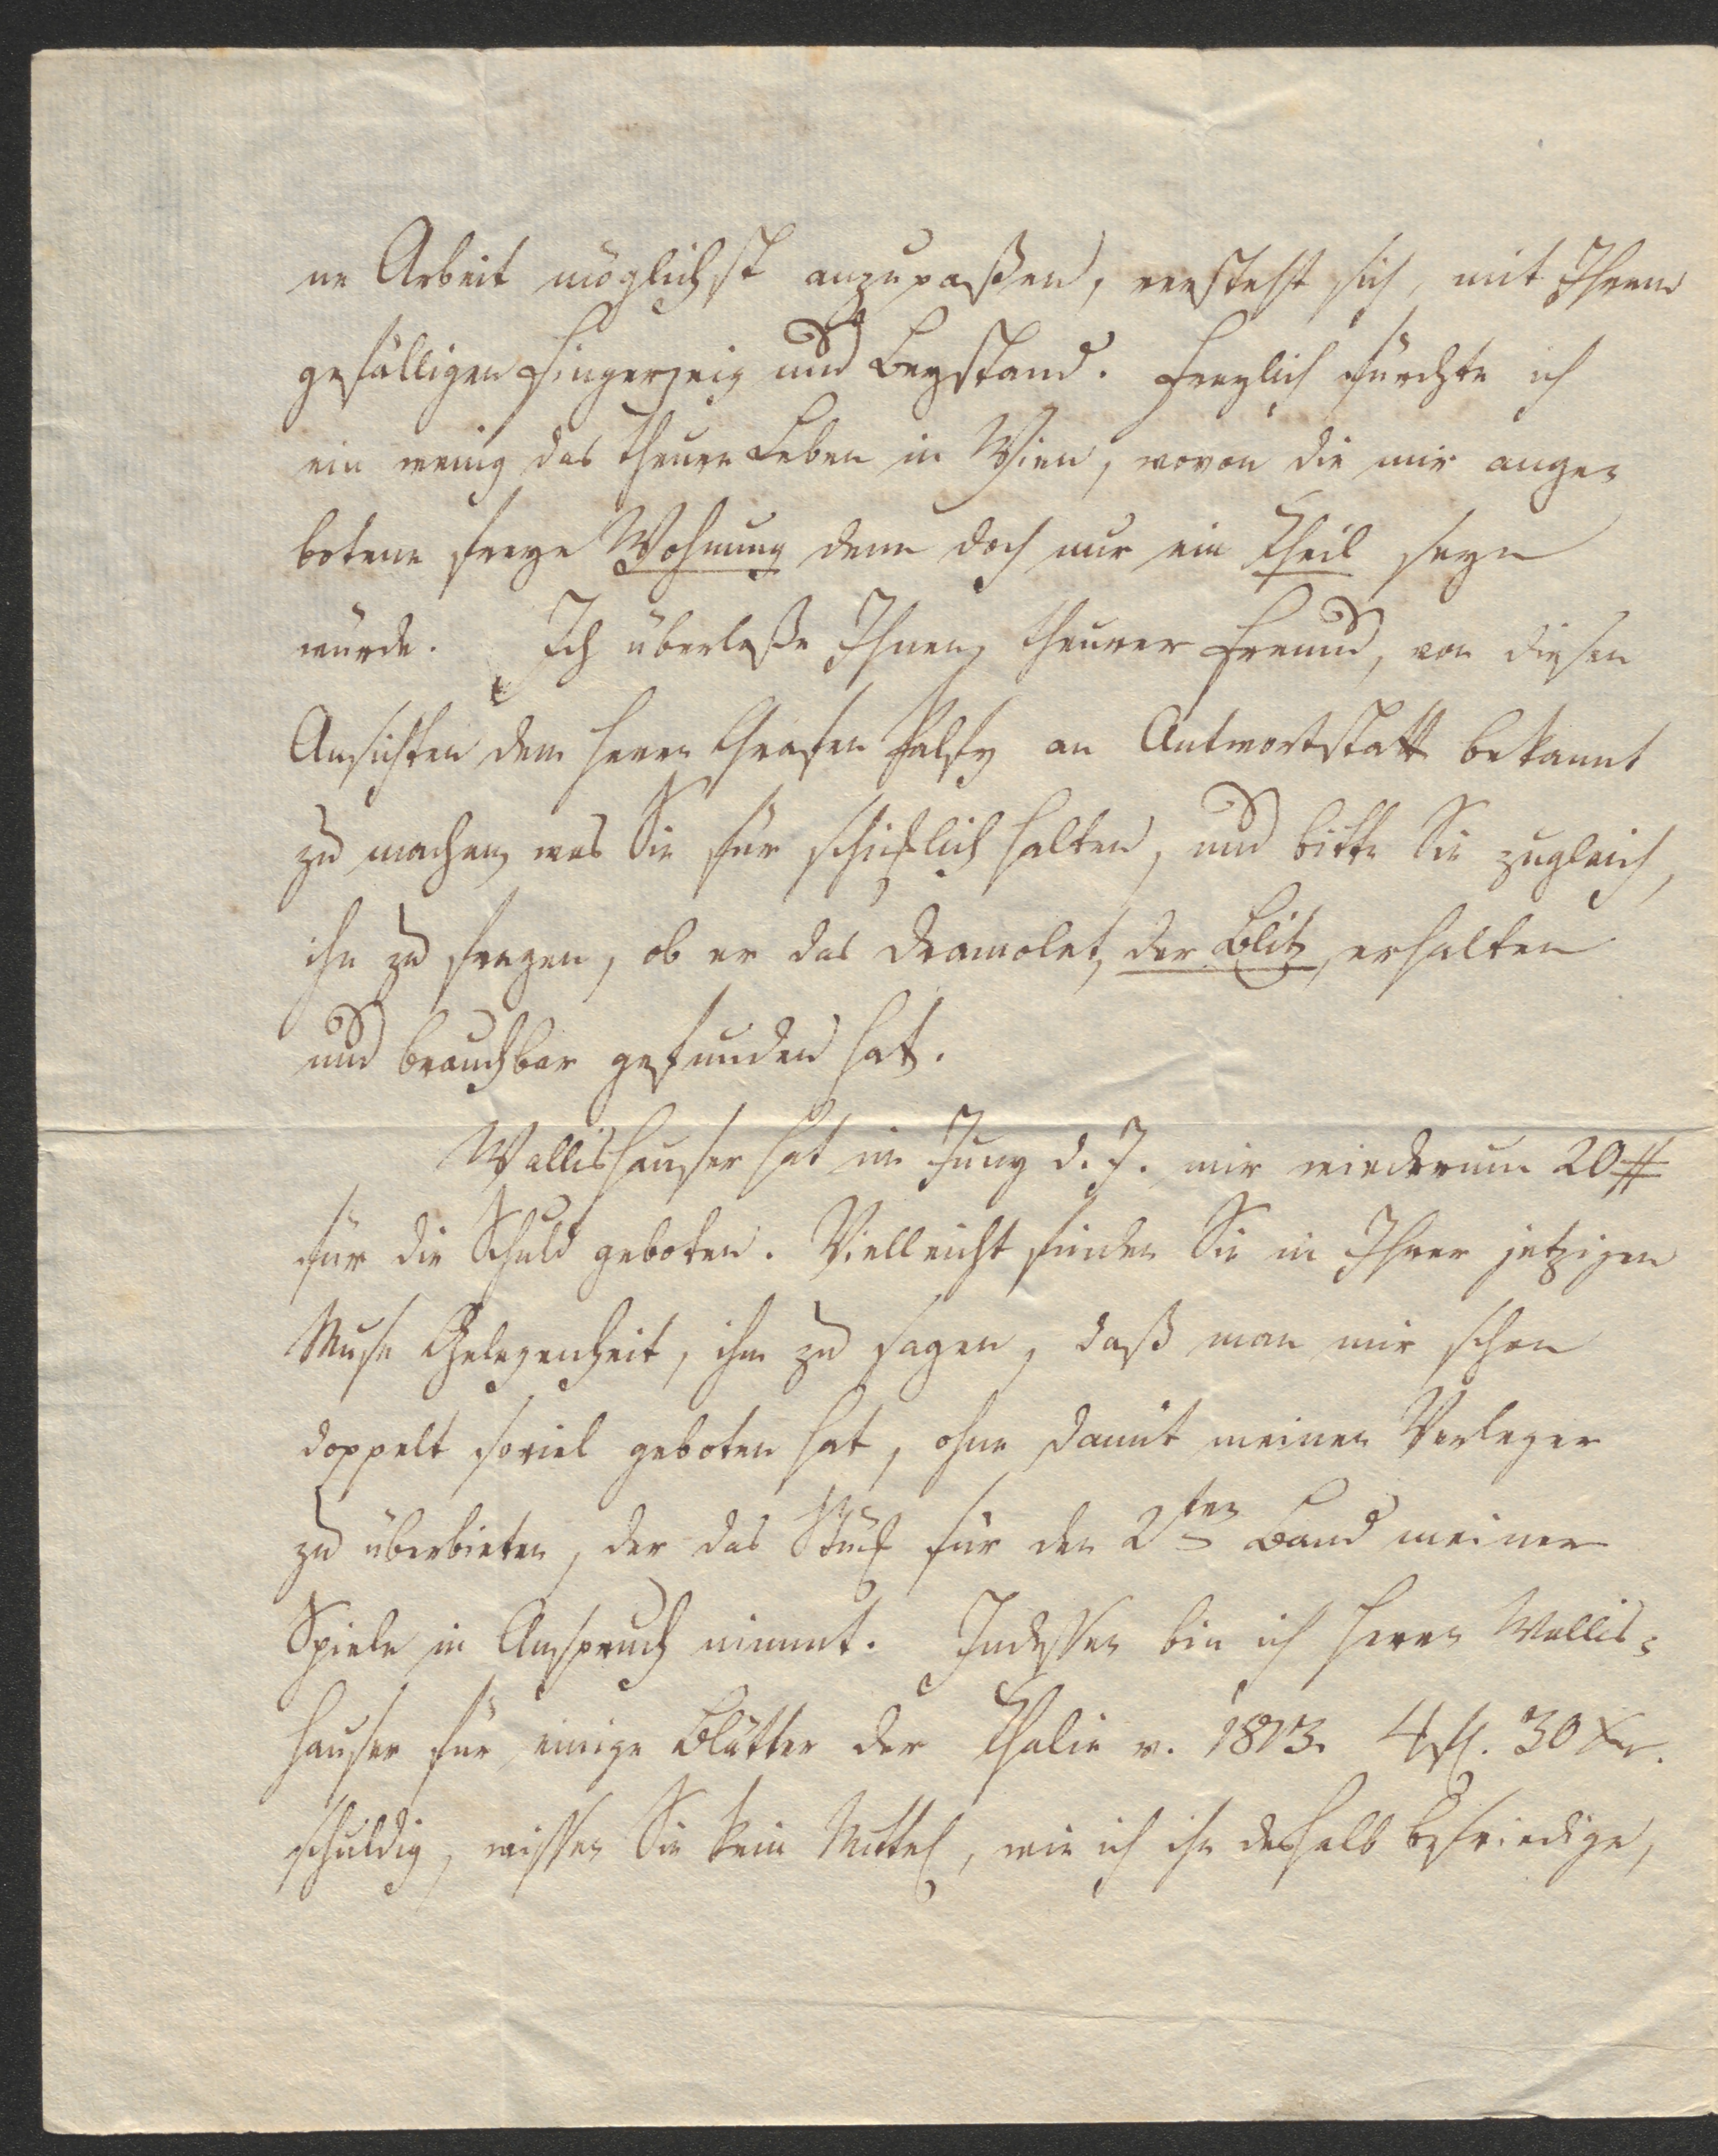 ne Arbeit möglichst anzupaßen, versteht sich, mit Ihrem
gefälligen Fingerzeig und Beystand. Freylich fürchte ich
ein wenig das theure Leben in Wien, wovon die mir ange-
botene freye Wohnung denn doch nur ein Theil seyn
würde. Ich überlaße Ihnen, theurer Freund, von diesen
Ansichten dem Herrn Grafen Palfy an Antwortstatt bekannt
zu machen, was Sie für schicklich halten, und bitte Sie zugleich,
ihn zu fragen, ob er das Dramolet, der Blitz, erhalten
und brauchbar gefunden hat.
Wallishauser hat im Juny d. J. mir wiederum 20 #
für die Schuld geboten. Vielleicht finden Sie in Ihrer jetzigen
Muse Gelegenheit, ihm zu sagen, daß man mir schon
doppelt soviel geboten hat, ohne damit meinen Verleger
zu überbieten, der das Stück für den 2ten Band meiner
Spiele in Anspruch nimmt. Indessen bin ich Herrn Wallis-
hauser für einige Blätter der Thalie v. 1813. 4 fl. 30 Xr.
schuldig, wissen Sie kein Mittel, wie ich ihn deshalb befriedige,